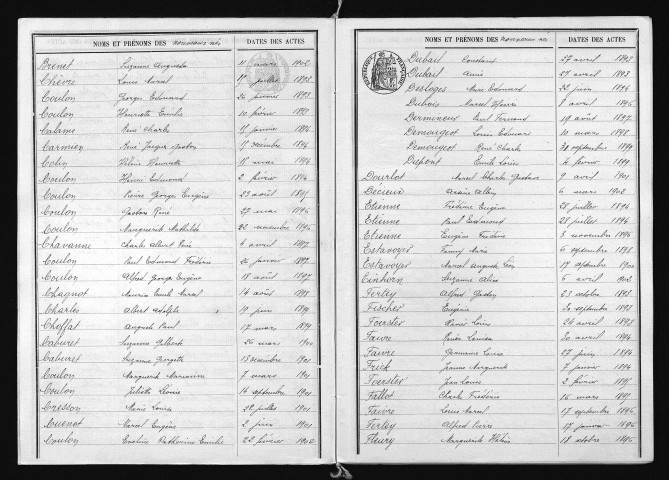 NOMS ET PRÉNOMS DES nouveaux nés DATES DES ACTES
Brenet Suzanne Augusta 11 mars 1902
Chèvre Louis Marcel 17 juillet 1893
Coulon Georges Edmond 20 janvier 1893
Coulon Henriette Emilie 10 février 1893
Calame René Charles 17 janvier 1894
Carmien René Joseph Gaston 17 décembre 1894
Colin Hélène Henriette 17 mai 1894
Coulon Henri Edmond 2 février 1894
Coulon Pierre Georges Eugène 23 août 1895
Coulon Gaston René 27 mai 1896
Coulon Marguerite Mathilde 22 novembre 1896
Chavanne Charles Albert René 4 avril 1897
Coulon Paul Edmond Frédéric 26 janvier 1897
Coulon Alfred George Eugène 18 août 1897
Chagnot Maurice Emile Marcel 14 août 1898
Charles Albert Adolphe 19 juin 1899
Choffat Auguste Paul 17 mars 1899
Caburet Suzanne Gilberte 26 mars 1900
Caburet Suzanne Georgette 13 décembre 1900
Coulon Marguerite Marianne 7 mars 1901
Coulon Juliette Léonie 14 septembre 1901
Cresson Marie Louise 28 juillet 1901
Cuenot Marcel Eugène 2 juin 1901
Coulon Eveline Catherine Emilie 22 février 1902
NOMS ET PRÉNOMS DES nouveaux nés DATES DES ACTES
Dubail Constant 27 avril 1893
Dubail Annie 27 avril 1893
Desloges Marc Edmond 22 juin 1894
Dubois Marcel Henri 7 avril 1896
Dermineur Paul Fernand 19 août 1897
Demougeot Louis Edouard 10 mars 1898
Demougeot René Charles 30 septembre 1899
Dupont Emile Louis 4 février 1899
Dourlot Marcel Charles Gustave 9 avril 1901
Décieux Albin 6 mars 1902
Etienne Frédéric Eugène 28 juillet 1894
Etienne Paul Edmond 28 juillet 1894
Etienne Eugène Frédéric 3 novembre 1896
Estavoyer Fanny Marie 6 septembre 1898
Estavoyer Marcel Auguste Léon 17 septembre 1900
Einhorn Suzanne Alice 6 avril 1902
Ferley Alfred Gaston 23 octobre 1893
Fischer Eugène 30 septembre 1893
Foerster René Louis 24 avril 1893
Faivre René Louis 20 avril 1894
Faivre Germaine Louise 27 juin 1894
Frick Jeanne Marguerite 7 janvier 1894
Foerster Jean Louis 2 février 1895
Fallot Charles Frédéric 16 mars 1895
Faivre Louis Marcel 17 septembre 1896
Ferley Alfred Pierre 17 janvier 1896
Fleury Marguerite Hélène 18 octobre 1896